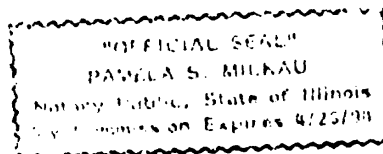 "OFFICIAL SEAL"
PAMELA S. MILKAU
Notary Public, State of Illinois
My Commission Expires 4/25/98